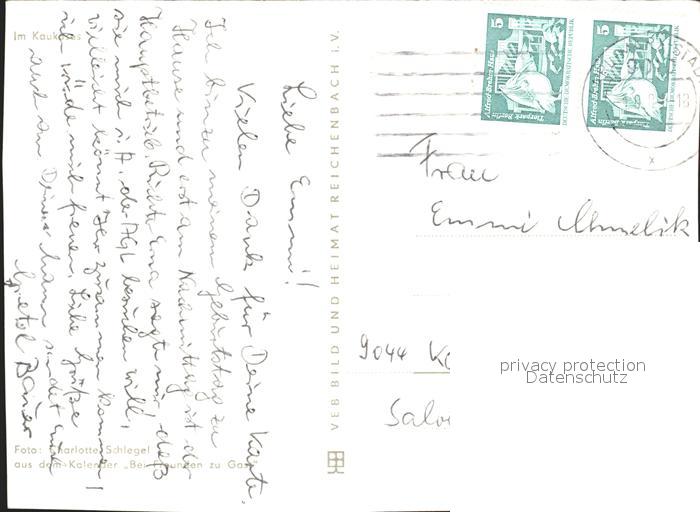 Im Kaukasus
Liebe Emmi!
Vielen Dank für Deine Karte.
Ich bin zu meinem Geburtstag zu
Hause und erst am Nachmittag ist der
Hauptbetrieb. Erna sagte mir, daß
sie mich i. A. der AGL besuchen will,
vielleicht könnt Ihr zusammen kommen!
ich würde mich freuen. Liebe Grüße
auch an Deinen Mann sendet
Bauer
Foto: Charlotte Schlegel
aus dem Kalender „Bei Freunden zu Gast"
VEB BILD UND HEIMAT REICHENBACH i. V.
5
Alfred-Brehm-Haus
Tierpark Berlin
DEUTSCHE DEMOKRATISCHE REPUBLIK
5
Alfred-Brehm-Haus
Tierpark Berlin
DEUTSCHE DEMOKRATISCHE REPUBLIK
Frau
Emmi
9044
privacy protection
Datenschutz